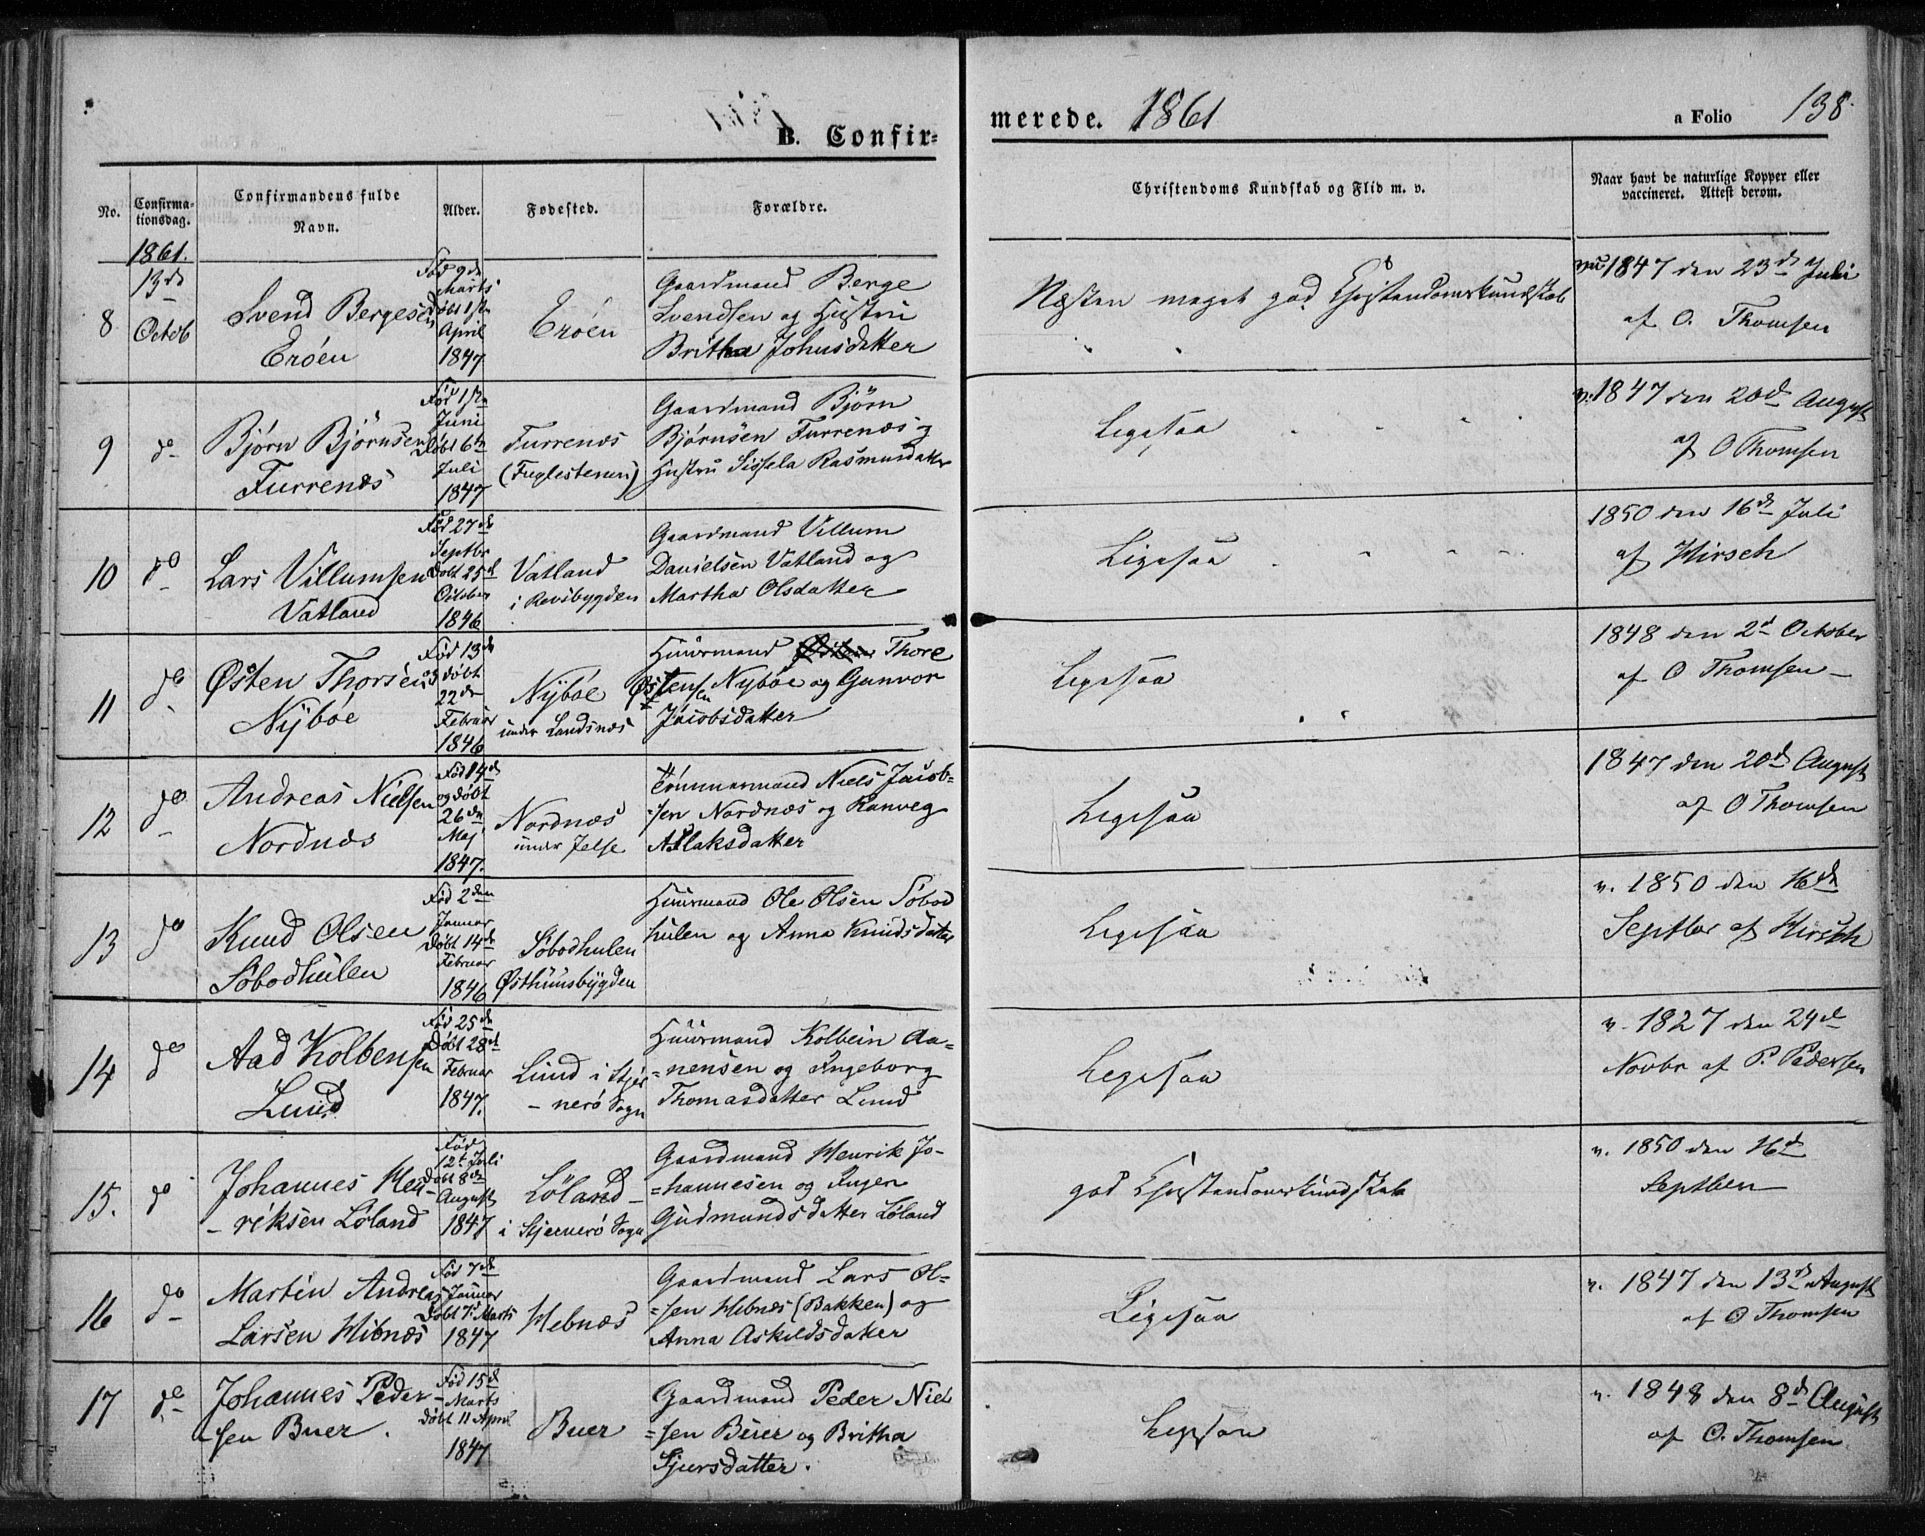 B. Confir-
merede. 1861
a Folio 138.
No.
Confirma-
tionsdag.
Confirmandens fulde
Navn.
Alder.
Fødested.
Forældre.
Christendoms Kundskab og Flid m. v.
Naar havt de naturlige Kopper eller
vaccineret. Attest derom.
1861.
8
13de
Octob
Svend Bergesen
Erøen
Fød 9de
Marts
døbt 1ste
April
1847
Erøen
Gaardmand Berge
Svendsen og Hustru
Britha Johnsdatter
Næsten meget god Christendomskundskab
1847 den 23de Juli
af O. Thomsen
9
do
Bjørn Bjørnsen
Furrenæs
Fød 1ste
Juni
Døbt 6te
Juli
1847
Furrenæs
(Fuglestenen)
Gaardmand Bjørn
Bjørnsen Furrenæs og
Hustru Sissela Rasmusdatter
Ligesaa
v. 1847 den 20de August
af O Thomsen
10
do
Lars Villumsen
Vatland
Fød 27de
Septbr
Døbt 25de
October
1846
Vatland
i Revsbygden
Gaardmand Villum
Danielsen Vatland og
Martha Olsdatter
Ligesaa
1850 den 16de Juli
af Hirsch
11
do
Østen Thorsen
Nybøe
Fød 13de
døbt
22de
Februar
1846
Nybøe
under Landsnæs
Huusmand Thore
Østensen Nybøe og Gunvor
Jacobsdatter
Ligesaa
1848 den 2d October
af O Thomsen
12
do
Andreas Nielsen
Nordnæs
Fød 14de
og døbt
26de
Maj
1847.
Nordnæs
under Jelse
Tømmermand Niels Jacob-
-sen Nordnæs og Ranveg
Aslaksdatter
Ligesaa
1847 den 20de August
af O Thomsen
13
do
Knud Olsen
Søbodhulen
Fød 2den
Januar
Døbt 14de
Februar
1846
Søbodhulen
Østhuusbygden
Huusmand Ole Olsen Søbod
hulen og Anna Knudsdatter
Ligesaa
v. 1850 den 16de
Septbr af Hirsch
14
do
Aad Kolbensen
Lund
Fød 25de
Døbt 28de
Februar
1847.
Lund i Stjer
- nerø Sogn
Huusmand Kolbein Aa-
-nensen og Ingeborg
Thomasdatter Lund
Ligesaa
v. 1827 den 24de
Novbr af P. Pedersen
15.
do
Johannes Hen
- riksen Løland
Fød
12t Juli
døbt 8de
August
1847
Løland
i Stjernerø Sogn
Gaardmand Henrik Jo-
-hannesen og Inger
Gudmundsdatter Løland
god Christendomskundskab
v. 1850 den 16de
Septben
16
do
Martin Andreas
Larsen Hibnæs
Fød 7de
Januar
Døbt 7de Marts
1847
Hebnæs
Gaardmand Lars Ol-
-sen Hebnæs (Bakken) og
Anna Askildsdatter
Ligesaa
v. 1847 den 13de August
af O Thomsen
17
do
Johannes Peder-
sen Buer.
Fød 15de
Marts
døbt 11 April
1847
Buer
Gaardmand Peder Niel
-sen Buer og Britha
Sjursdatter.
Ligesaa
v. 1848 den 8de August
af O. Thomsen